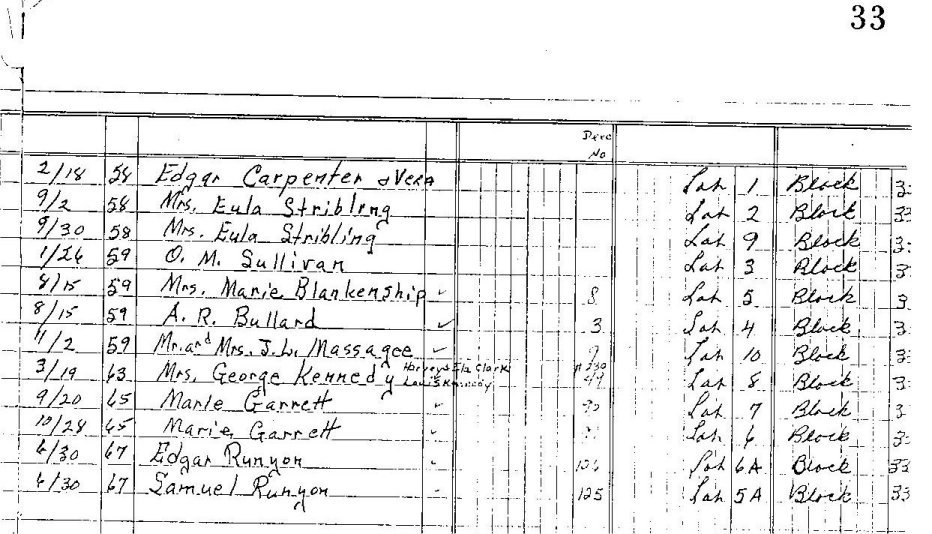 33
Deed No
2/18 58 Edgar Carpenter & Vera Lot 1 Block 33
9/2 58 Mrs. Eula Stribling Lot 2 Block 33
9/30 58 Mrs. Eula Stribling Lot 9 Block 3
1/26 59 O. M. Sullivan Lot 3 Block 3
8/15 59 Mrs. Marie Blankenship ✓ 8 Lot 5 Block 3
8/15 59 A. R. Bullard ✓ 3 Lot 4 Block 3
11/2 59 Mr. and Mrs. J. L. Massagee ✓ 9 Lot 10 Block 3
3/19 63 Mrs. George Kennedy Lot 8 Block 3
9/20 65 Marie Garrett ✓ Lot 7 Block 3
10/28 65 Marie Garrett ✓ Lot 6 Block 3
6/30 67 Edgar Runyon ✓ 126 Lot 6A Block 33
6/30 67 Samuel Runyon ✓ 125 Lot 5A Block 33